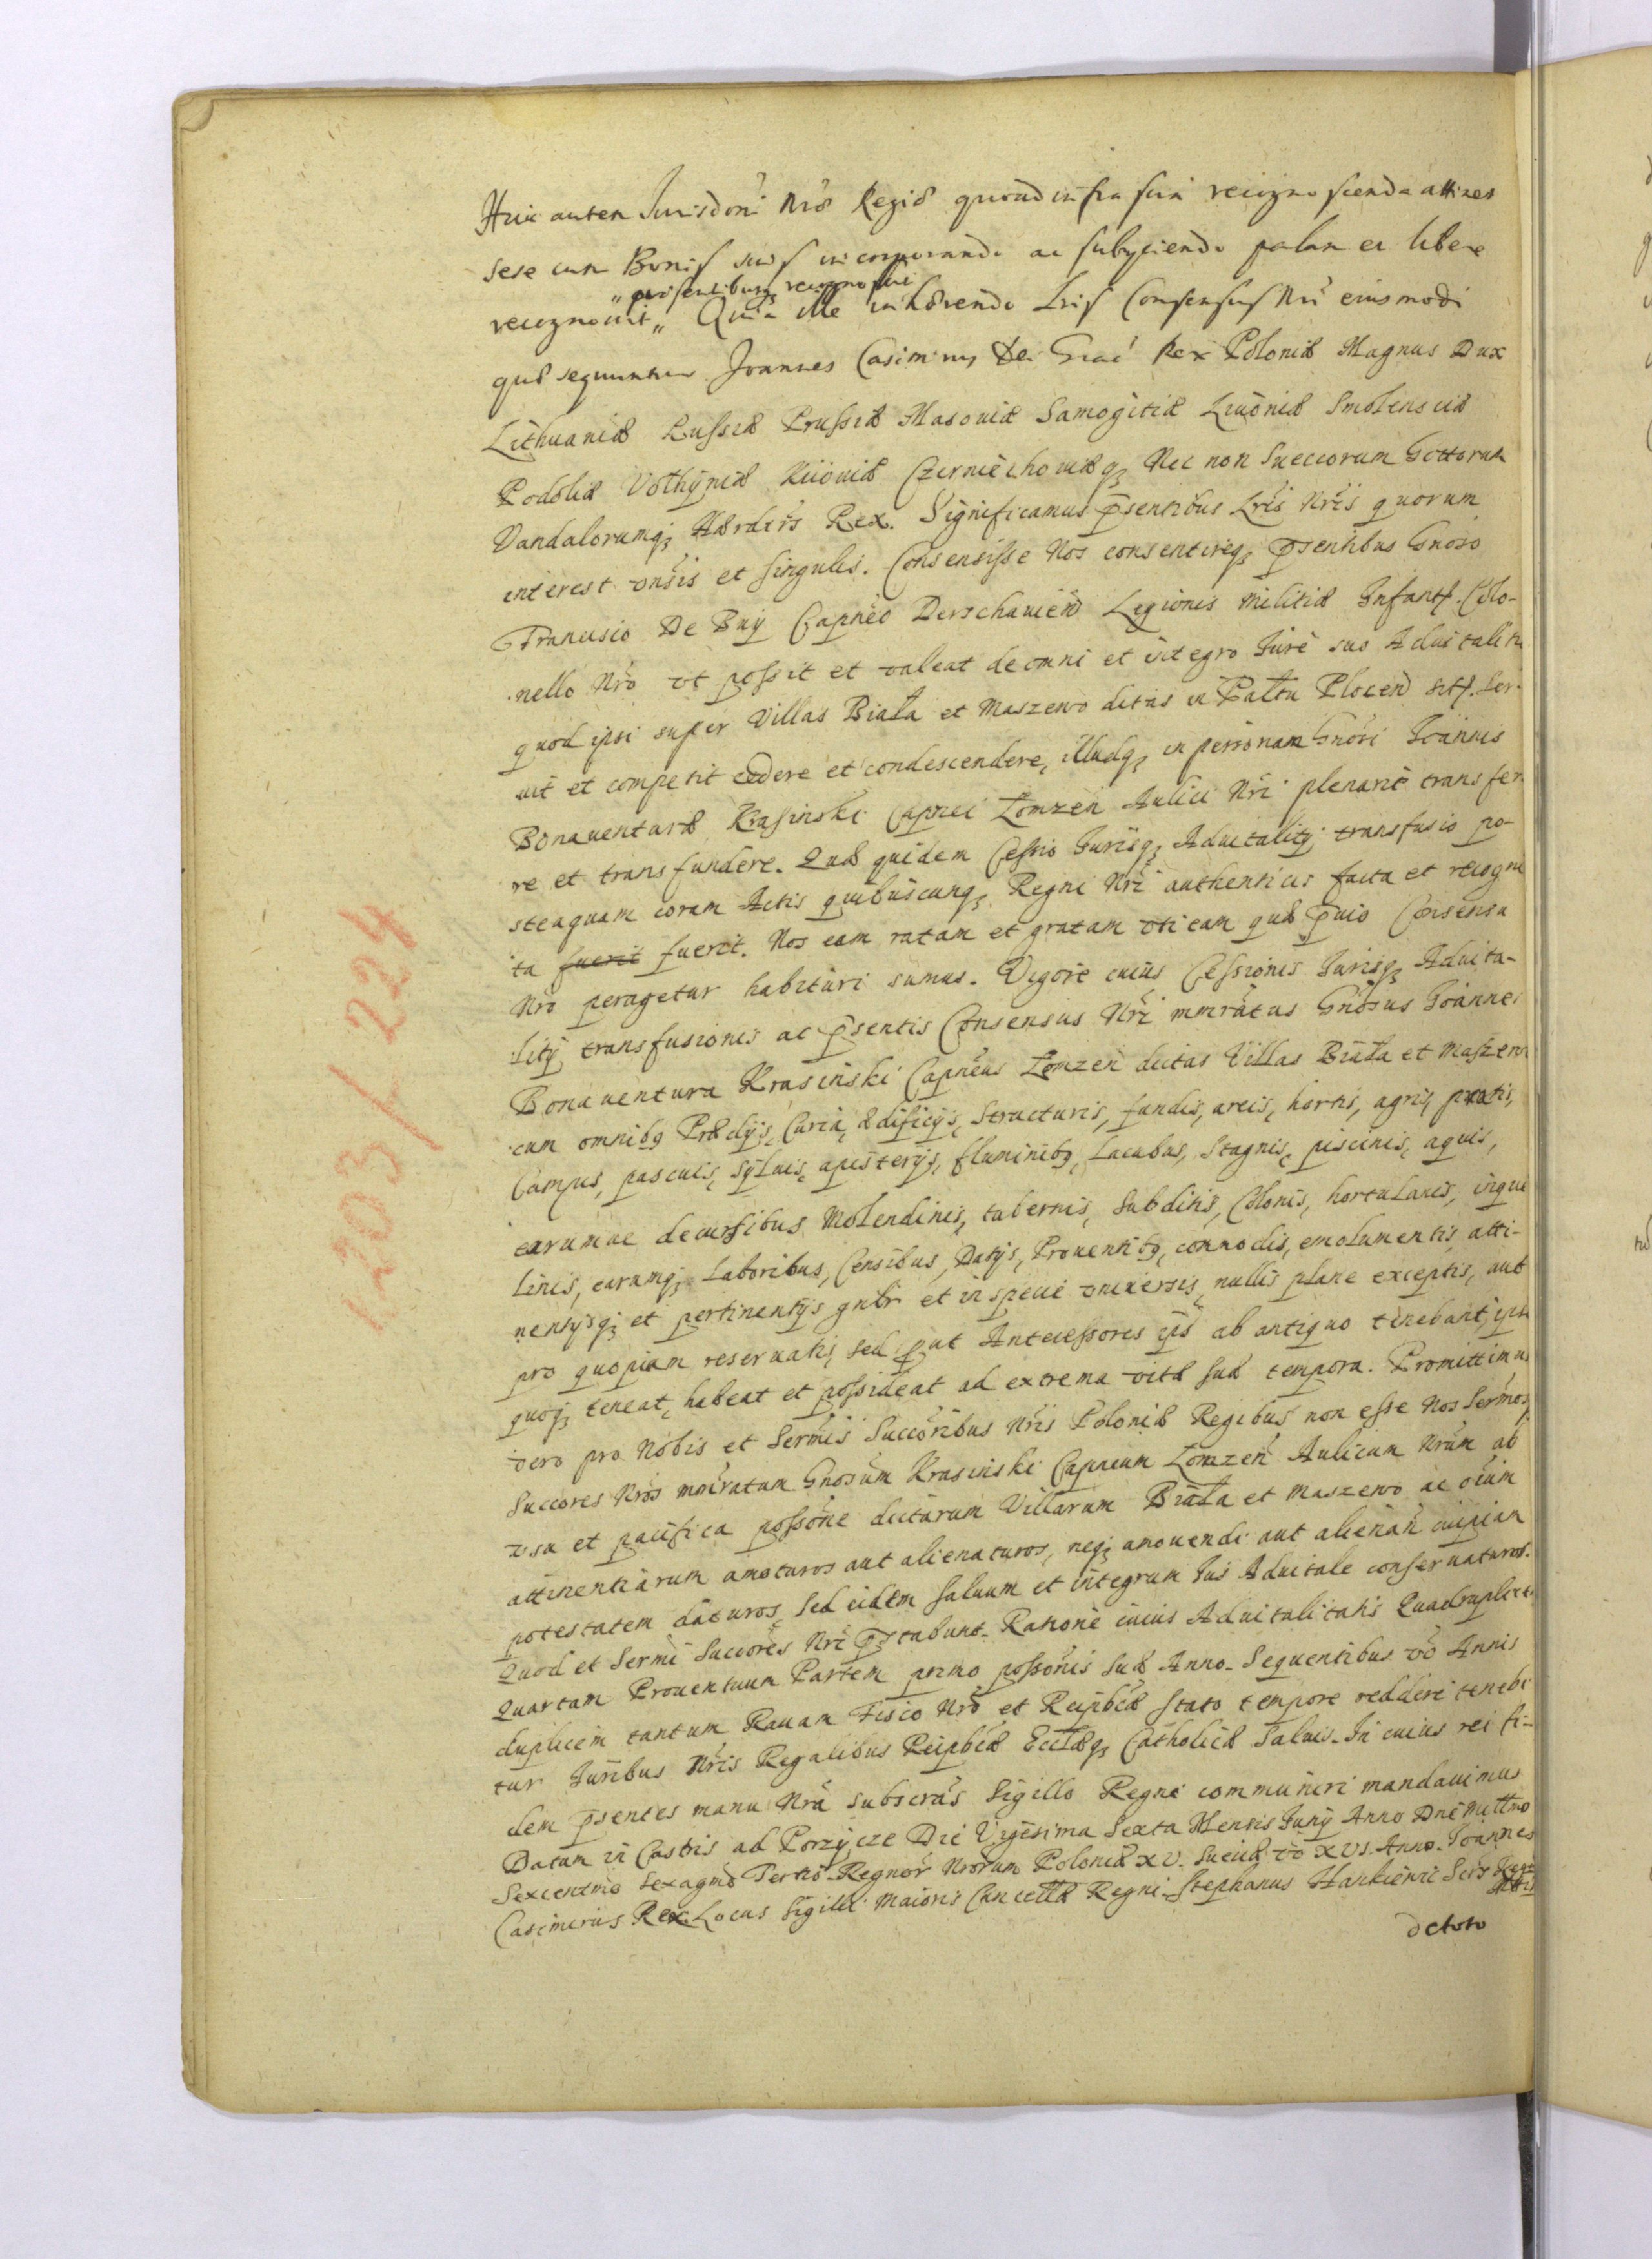 Huic autem Jurisdoni Nræ Regiæ quoad infra scrip recognoscenda attinet
sese cum Bonis suis incorporando ac subyciendo palam et libere
„ præsentibusq recognoscit
recognovit „ Quia ille inhærendo Lris Consensus Nri eiusmodi
quæ sequuntur Joannes Casimirus Dei Gratâ Rex Poloniæ Magnus Dux
Lithuaniæ Russiæ Prussiæ Masoviæ Samogitiæ Livoniæ Smolensciæ
Podoliæ Volhyniæ Kiioviæ Czerniechoviæq Nec non Suecorum Gottorum
Vandalorumq Hærdrŭs Rex. Significamus p̄sentibus Lris Nris quorum
interest vnsis et singulis. Consensisse Nos consentireq p̄sentibus Gnoso
Francisio De Buy Capneo Derschavien Legionis Militiæ Infant. Colo-
nello Nro vt possit et valeat de omni et integro Jure suo Advitalitio
quod ipsi super Villas Biała et Maszewo dictas in Palttu Plocen sit. Ser-
uit et competit cedere et condescendere, illudq in personam Gnosi Joannis
Bonaventuræ Krasinski Capnei Łomzen Aulici Nri plenarie transfer-
re et transfundere. Quæ quidem Cessio Jurisq Advitalitij transfusio po-
steaquam coram Actis quibuscunq Regni Nri authenticis facta et recogni
ta fuerit fuerit. Nos eam ratam et gratam vti eam quæ p̄uio Consensu
Nro peragetur habituri sumus. Vigore cuius Cessionis Jurisq Advita-
litij transfusionis ac p̄sentis Consensus Nri mmratus Gnosus Joannes
Bonaventura Krasinski Capneus Łomzen dictas Villas Biała et Maszewo
cum omnibq Prædijs, Curia, ædificijs, Structuris, fundis, areis, hortis, agris, pratis,
Campis, pascuis, sylvis, apisterijs, fluminibq, Lacubus, Stagnis, piscinis, aquis,
earumve decursibus Molendinis, tabernis, Subditis, Colonis, hortulanis, inqui
linis, earumq Laboribus, Censibus, Datijs, Proventibq, commodis, emolumentis, atti-
nentijsq et pertinentijs gnlr et in specie vniversis, nullis plane exceptis, aut
pro quopiam reservatis, sed put Antecessores ips ab antiquo tenebant, ipse
quoq teneat, habeat et possideat ad extrema vitæ suæ tempora. Promittimus
vero pro Nobis et Sermis Succoribus Nris Poloniæ Regibus non esse Nos Sermosq
Succores Nros mmratum Gnosum Krasinski Capneum Łomzen Aulicum Nrum ab
vsu et pacifica possone dictarum Villarum Biała et Maszewo ac oium
attinentiarum amoturos aut alienaturos, neq amovendi aut alienan cuipiam
potestatem daturos, Sed eidem saluum et integrum Jus Advitale conservaturos.
Quod et Sermi Succores Nri p̄stabunt. Ratione cuius Advitalitatis Quadruplicem
Quartam Proventuum Partem primo possonis suæ Anno. Sequentibus vo Annis
duplicem tantum Ravam Fisco Nro et Reipbcæ stato tempore reddere tenebi
tur Juribus Nris Regalibus Reipbcæ Ecclæq Catholicæ Salvis. In cuius rei fi-
dem p̄sentes manu Nra subscras Sigillo Regni communiri mandavimus
Datum in Castris ad Porzycze Die Vigesima Sexta Mensis Junij Anno Dni Millmo
Sexcentmo Sexagmo Tertio. Regnor Nrorum Poloniæ XV. Sueciæ vo XVI. Anno. Joannes
Casimirus Rex. Locus Sigilli Maioris Cancellæ Regni. Stephanus Hankiewic Secr
de toto
1203/224